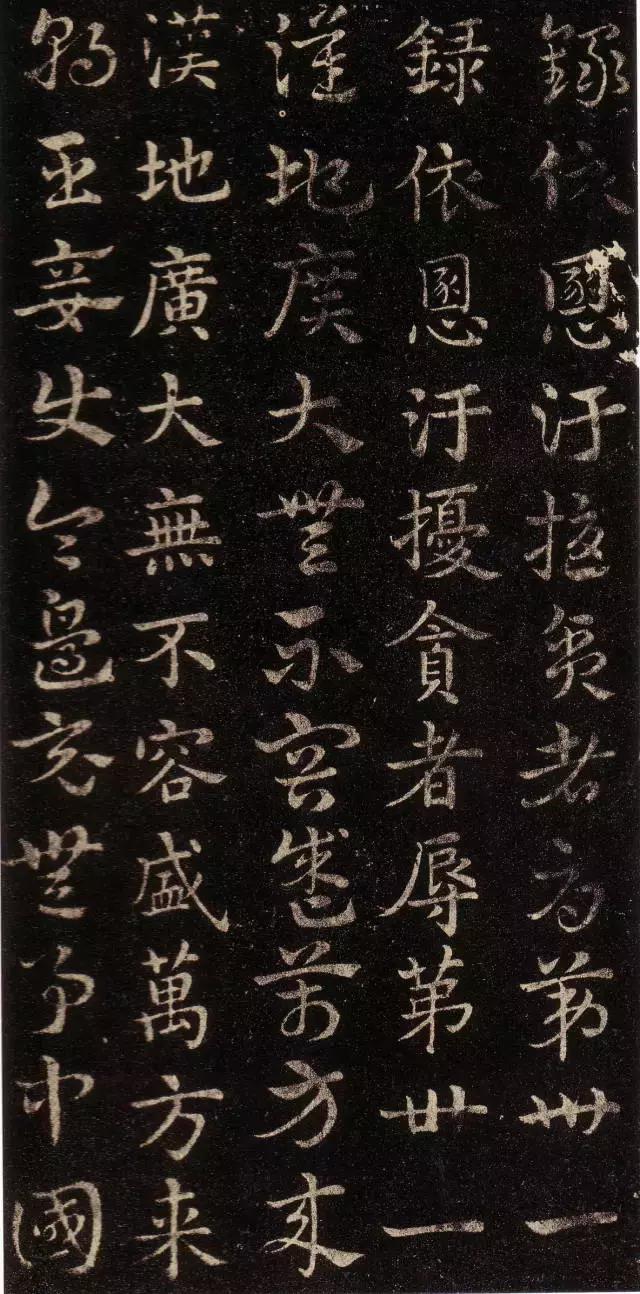 録依恩汙擾貪者辱第卅一
録依恩汙擾貪者辱第卅一
漢地廣大無不容盛萬方来
漢地廣大無不容盛萬方来
朝臣妾使令邊竟無事中國